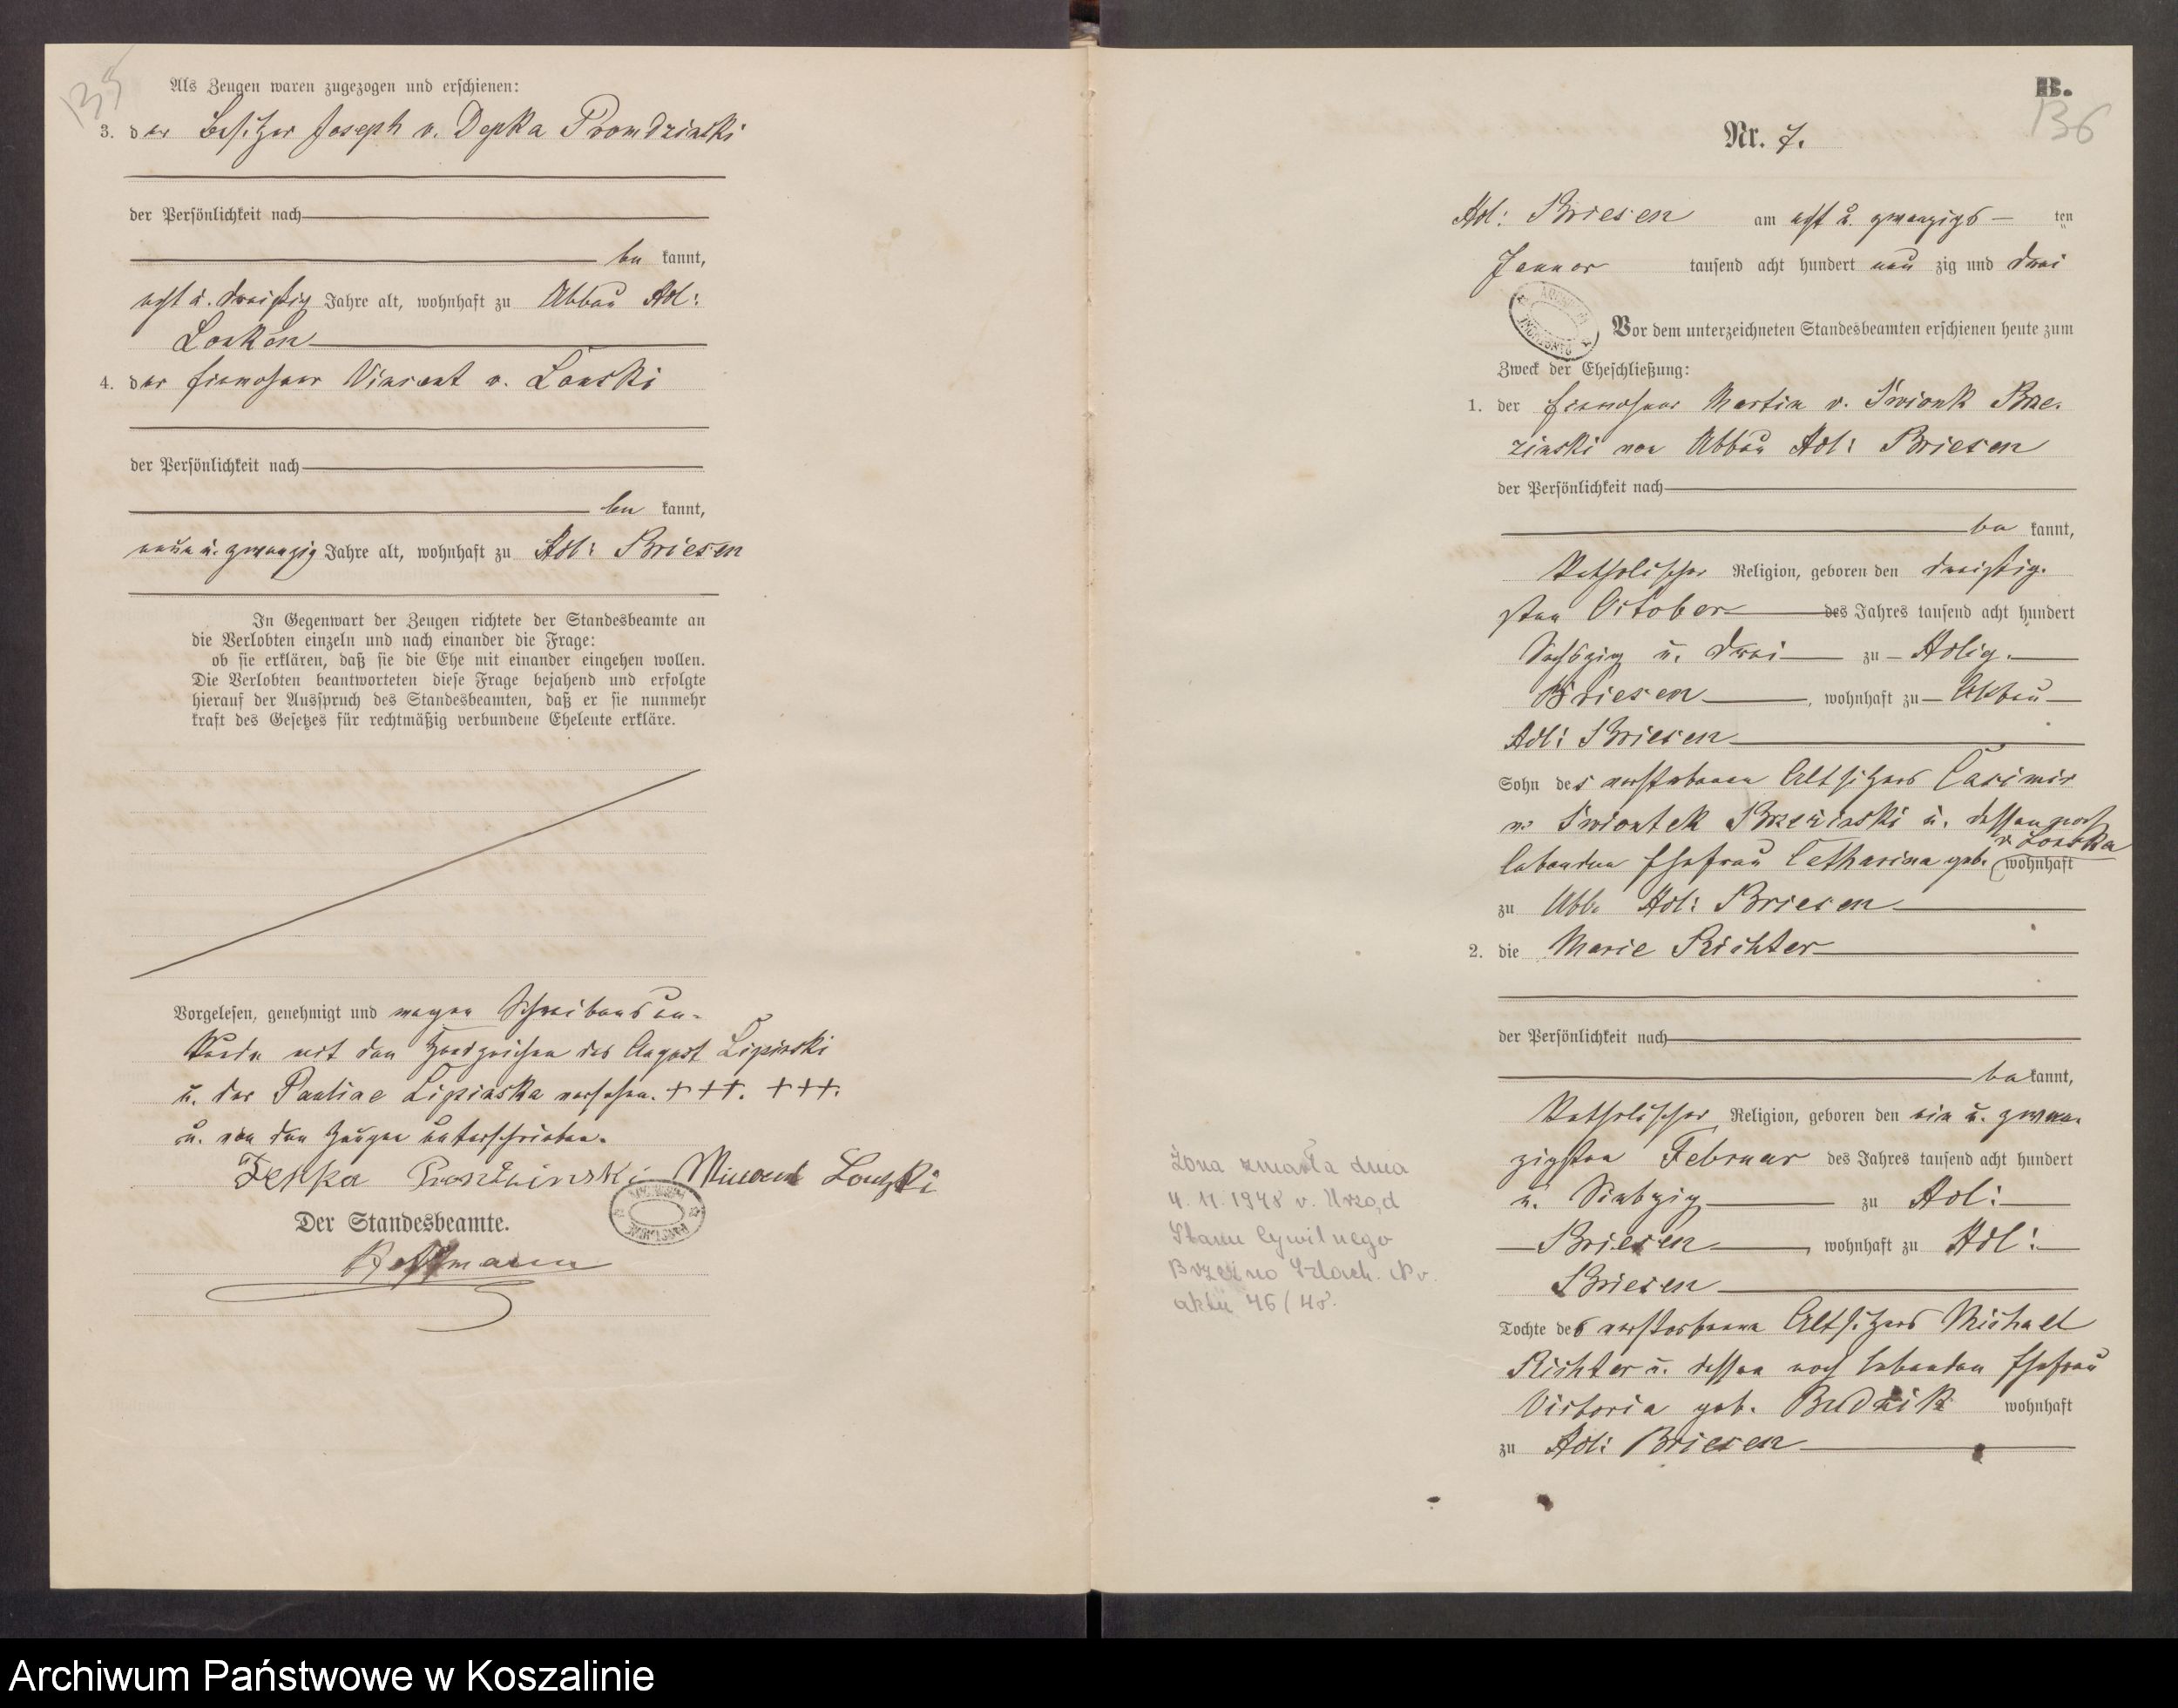 135
Als Zeugen waren zugezogen und erschienen:
3. der Besitzer Joseph v. Depka Prondzinski
der Persönlichkeit nach
be kannt,
acht u. dreißig Jahre alt, wohnhaft zu Abbau Adl:
Lonken
4. der Einwohner Vincent v. Lonski
der Persönlichkeit nach
be kannt,
neun u. zwanzig Jahre alt, wohnhaft zu Adl: Briesen
In Gegenwart der Zeugen richtete der Standesbeamte an
die Verlobten einzeln und nach einander die Frage:
ob sie erklären, daß sie die Ehe mit einander eingehen wollen.
Die Verlobten beantworteten diese Frage bejahend und erfolgte
hierauf der Ausspruch des Standesbeamten, daß er sie nunmehr
kraft des Gesetzes für rechtmäßig verbundene Eheleute erkläre.
Vorgelesen, genehmigt und wegen Schreibensun-
kunde mit den Handzeichen des August Lipinski
u. der Pauline Lipinska versehen. +++. +++.
u. von den Zeugen unterschrieben.
Depka Prondzinski Vincent Lonski
Der Standesbeamte.
B.
136
Nr. 7.
Adl: Briesen am acht u. zwanzigs ten
Januar tausend acht hundert neun zig und drei
Vor dem unterzeichneten Standesbeamten erschienen heute zum
Zweck der Eheschließung:
1. der Einwohner Martin v. Swionk Brze-
zinski von Abbau Adl: Briesen
der Persönlichkeit nach
be kannt,
katholischer Religion, geboren den dreißig-
sten October des Jahres tausend acht hundert
Sechszig u. drei zu Adlig.
Briesen, wohnhaft zu Abbau
Adl: Briesen
Sohn des verstorbenen Altsitzers Casimir
v. Swiontek Brzezinski u. dessen noch
lebenden Ehefrau Catharina geb. v. Lonska wohnhaft
zu Abb. Adl: Briesen
2. die Marie Richter
der Persönlichkeit nach
be kannt,
katholischer Religion, geboren den ein u. zwan-
zigsten Februar des Jahres tausend acht hundert
u. Siebzig zu Adl:
Briesen, wohnhaft zu Adl:
Briesen
Tochte des verstorbenen Altsitzers Michael
Richter u. dessen noch lebenden Ehefrau
Victoria geb. Budzik wohnhaft
zu Adl: Briesen
Żona zmarła dnia
4. 11. 1948 r. Urząd
Stanu Cywilnego
Brzeźno Szlach. Nr.
aktu 46/48.
Archiwum Państwowe w Koszalinie